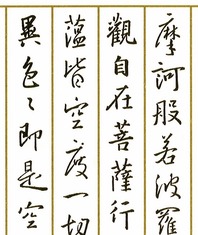 摩訶般若波羅
觀自在菩薩行
蘊皆空度一切
異色〻即是空